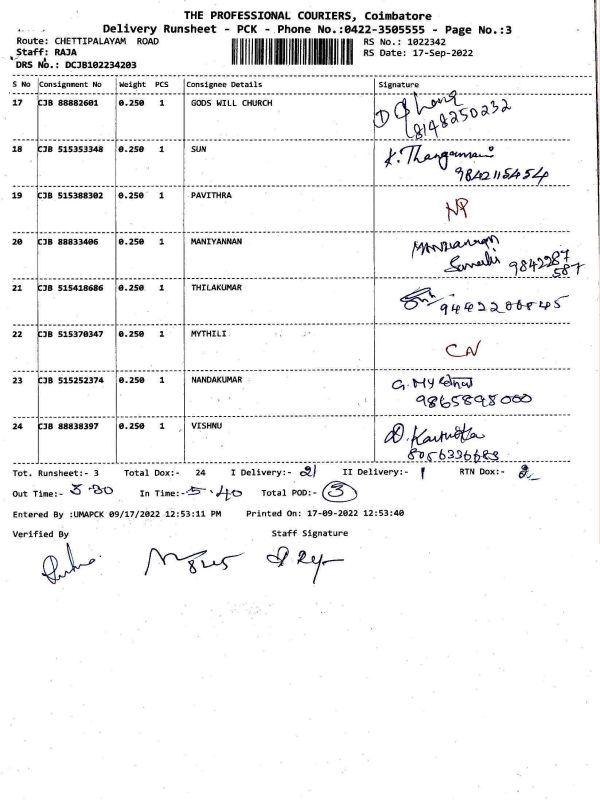 THE PROFESSIONAL COURIERS, Coimbatore
Delivery Runsheet - PCK - Phone No.:0422-3505555 - Page No.:3
Route: CHETTIPALAYAM ROAD RS No.: 1022342
Staff: RAJA RS Date: 17-Sep-2022
DRS No.: DCJB102234203
S No Consignment No Weight PCS Consignee Details Signature
17 CJB 88882601 0.250 1 GODS WILL CHURCH
8148250232
18 CJB 515353348 0.250 1 SUN K. Thangamani
9842115454
19 CJB 515388302 0.250 1 PAVITHRA NP
20 CJB 88833406 0.250 1 MANIYANNAN
9842287
587
21 CJB 515418686 0.250 1 THILAKUMAR
22 CJB 515370347 0.250 1 MYTHILI CN
23 CJB 515252374 0.250 1 NANDAKUMAR
9865898000
24 CJB 88838397 0.250 1 VISHNU
8056336683
Tot. Runsheet:- 3 Total Dox:- 24 I Delivery:- 21 II Delivery:- 1 RTN Dox:- 2
Out Time:- 3.30 In Time:- 5.40 Total POD:- 3
Entered By :UMAPCK 09/17/2022 12:53:11 PM Printed On: 17-09-2022 12:53:40
Verified By Staff Signature